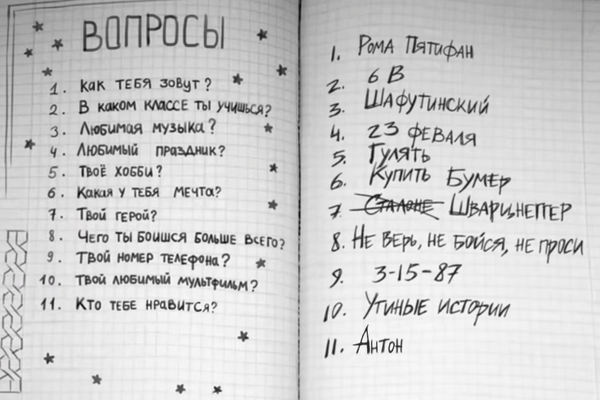 ВОПРОСЫ
1. Как тебя зовут?
2. В каком классе ты учишься?
3. Любимая музыка?
4. Любимый праздник?
5. Твоё хобби?
6. Какая у тебя мечта?
7. Твой герой?
8. Чего ты боишся больше всего?
9. Твой номер телефона?
10. Твой любимый мультфильм?
11. Кто тебе нравится?
1. Рома Пятифан
2. 6 В
3. Шафутинский
4. 23 феваля
5. Гулять
6. Купить Бумер
7. Сталоне Шварцнеггер
8. Не верь, не бойся, не проси
9. 3-15-87
10. Утиные истории
11. Антон